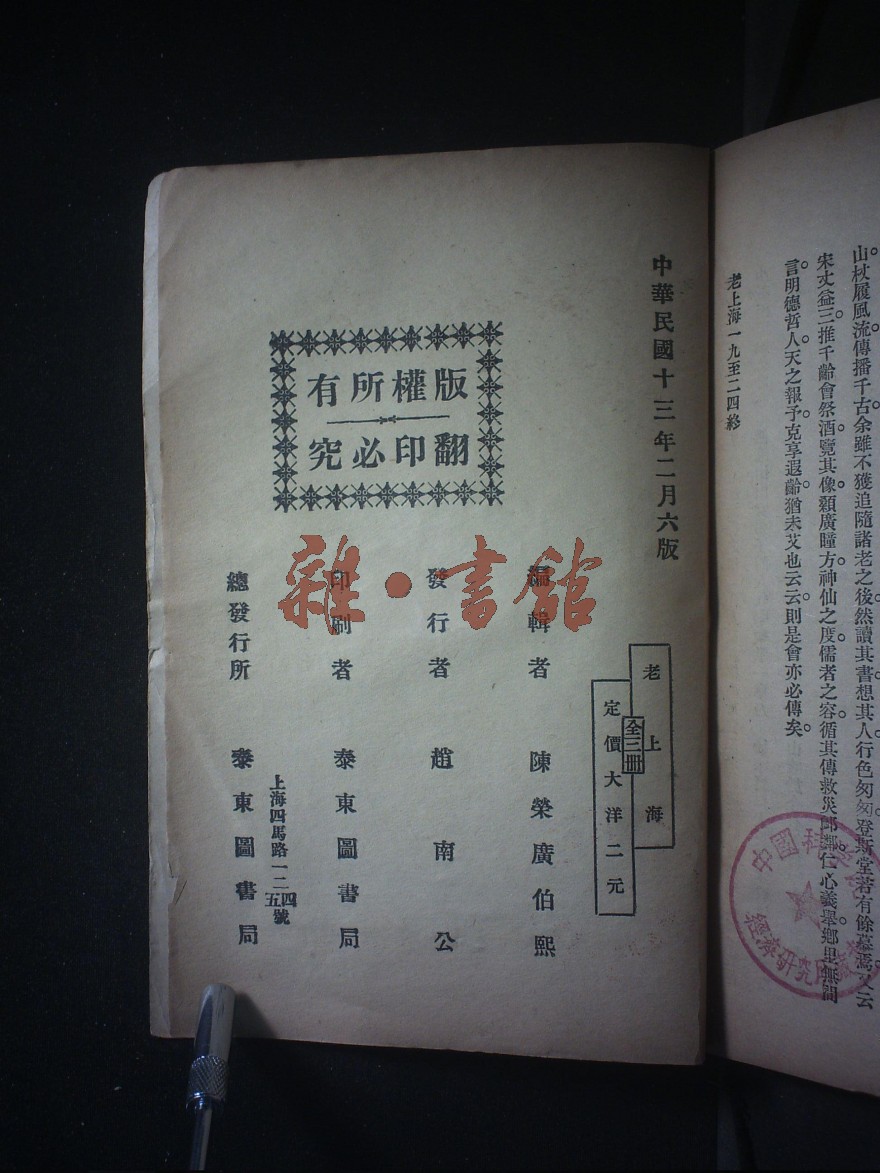 山杖履風流傳播千古余雖不獲追隨諸老之後然讀其書想其人行色匆匆登斯堂若有餘慕焉又云
宋丈益三推千齡會祭酒覽其像顙廣瞳方神仙之度儒者之容循其傳救災卹鄰仁心義舉鄉里無間
言明德哲人天之報予克享遐齡猶未艾也云云則是會亦必傳矣
老上海一九至二四終
中華民國十三年二月六版
版權所有
翻印必究
老上海
全三冊
定價大洋二元
編輯者 陳榮廣伯熙
發行者 趙南公
印刷者 泰東圖書局
上海四馬路一二四五號
總發行所 泰東圖書局
雜·書館
中國科學院
經濟研究所藏